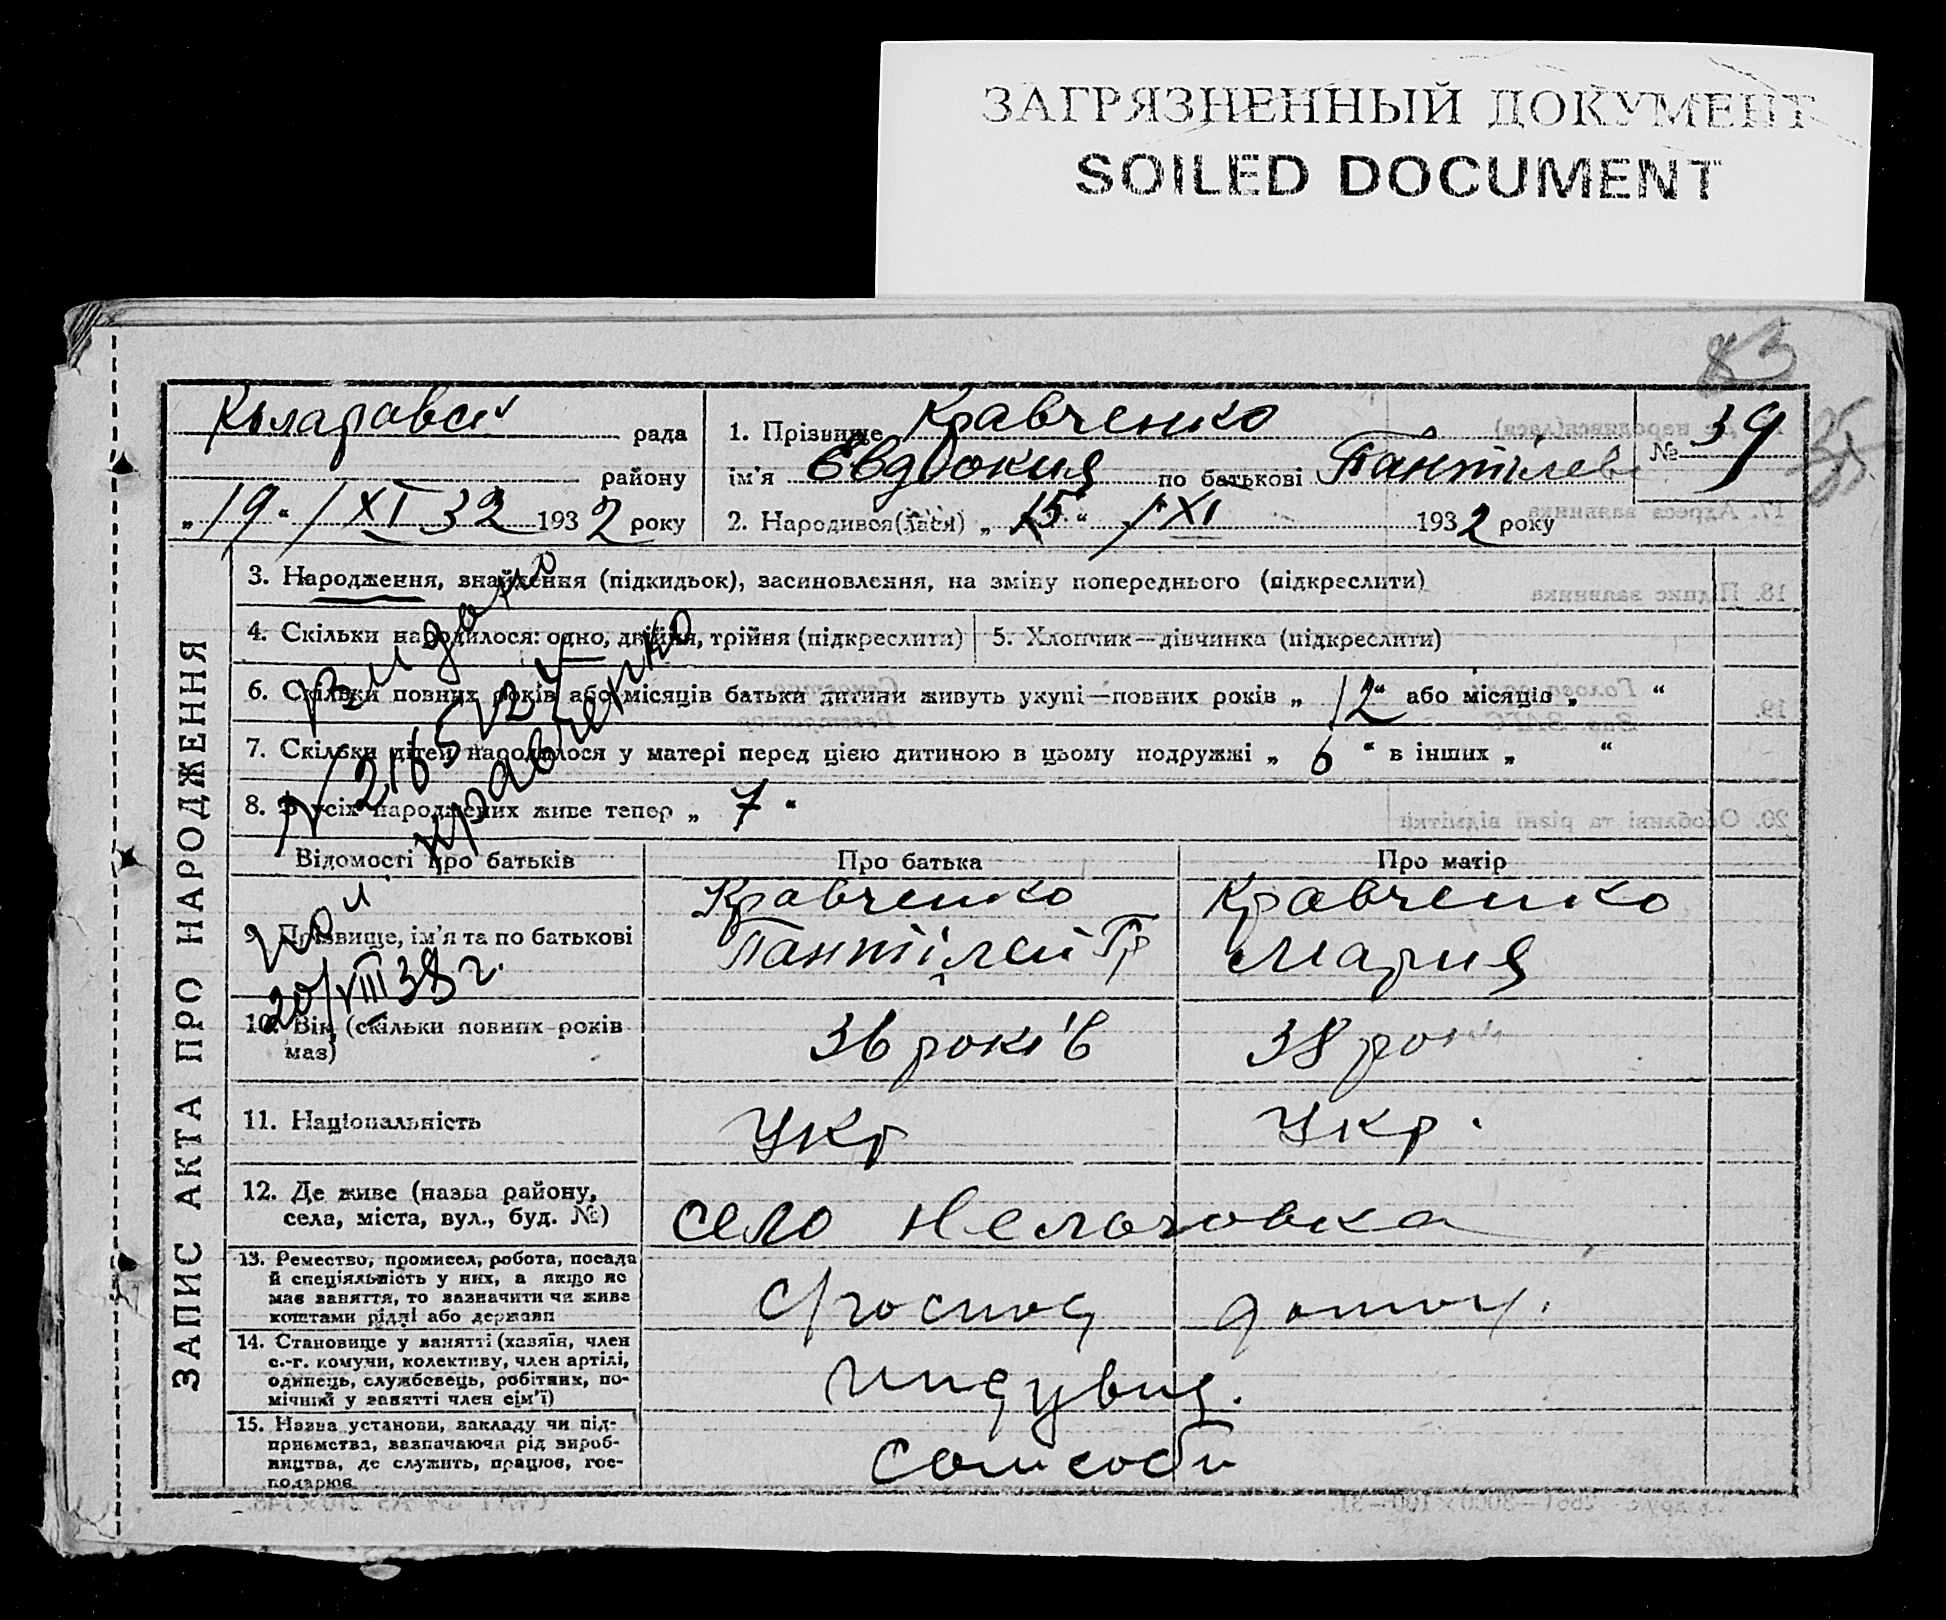 ЗАГРЯЗНЕННЫЙ ДОКУМЕНТ
SOILED DOCUMENT
83
рада
району
„19“ / XI 32 1932 року
1. Прізвище Кравченко
ім'я Евдокия по батькові Пантілев
2. Народився(лася) „15“ / XI 1932 року
№ 39
ЗАПИС АКТА ПРО НАРОДЖЕННЯ
3. Народження, знайдення (підкидьок), засиновлення, на зміну попереднього (підкреслити)
4. Скільки народилося: одно, двійня, трійня (підкреслити)
5. Хлопчик—дівчинка (підкреслити)
6. Скільки повних років або місяців батьки дитини живуть укупі—повних років „12“ або місяців „ “
7. Скільки дітей народилося у матері перед цією дитиною в цьому подружжі „6“ в інших „ “
8. З усіх народжених живе тепер „7“
Видано
Кравченко
20/VIII 38 г.
Відомості про батьків
Про батька
Про матір
9. Прізвище, ім'я та по батькові
Кравченко
Пантілей Гр
Кравченко
Мария
10. Вік (скільки повних років має)
36 років
38 років
11. Національність
Укр
Укр.
12. Де живе (назва району,
села, міста, вул., буд. №)
село
13. Ремество, промисел, робота, посада
й спеціяльність у них, а якщо не
має заняття, то зазначити чи живе
коштами рідні або держави
с/господ
домог.
14. Становище у занятті (хазяїн, член
с.-г. комуни, колективу, член артілі,
одинець, службовець, робітник, по-
мічний у занятті член сім'ї)
индувид.
15. Назва установи, закладу чи під-
приємства, зазначаючи рід вироб-
ництва, де служить, працює, гос-
подарює